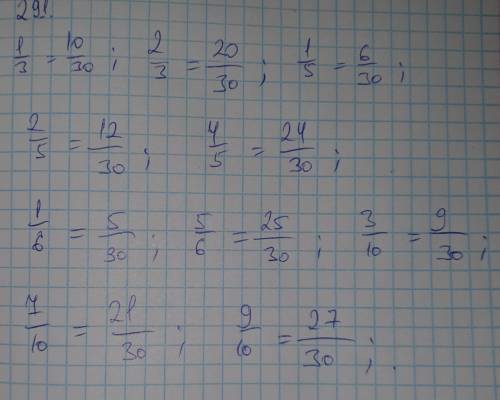 291.
1/3 = 10/30 ; 2/3 = 20/30 ; 1/5 = 6/30 ;
2/5 = 12/30 ; 4/5 = 24/30 ;
1/6 = 5/30 ; 5/6 = 25/30 ; 3/10 = 9/30 ;
7/10 = 21/30 ; 9/10 = 27/30 ; .